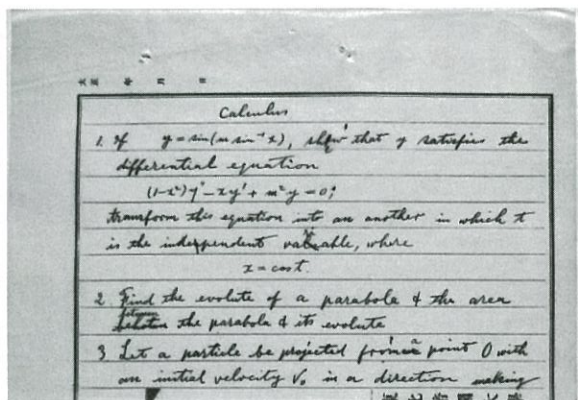 Calculus
1. If y = sin(m sin⁻¹ x), show that y satisfies the
differential equation
(1-x²)y" - xy' + m²y = 0;
transform this equation into an another in which t
is the independent variable, where
x = cos t.
2. Find the evolute of a parabola & the area
between
the parabola & its evolute
3. Let a particle be projected from a point O with
an initial velocity V₀ in a direction making